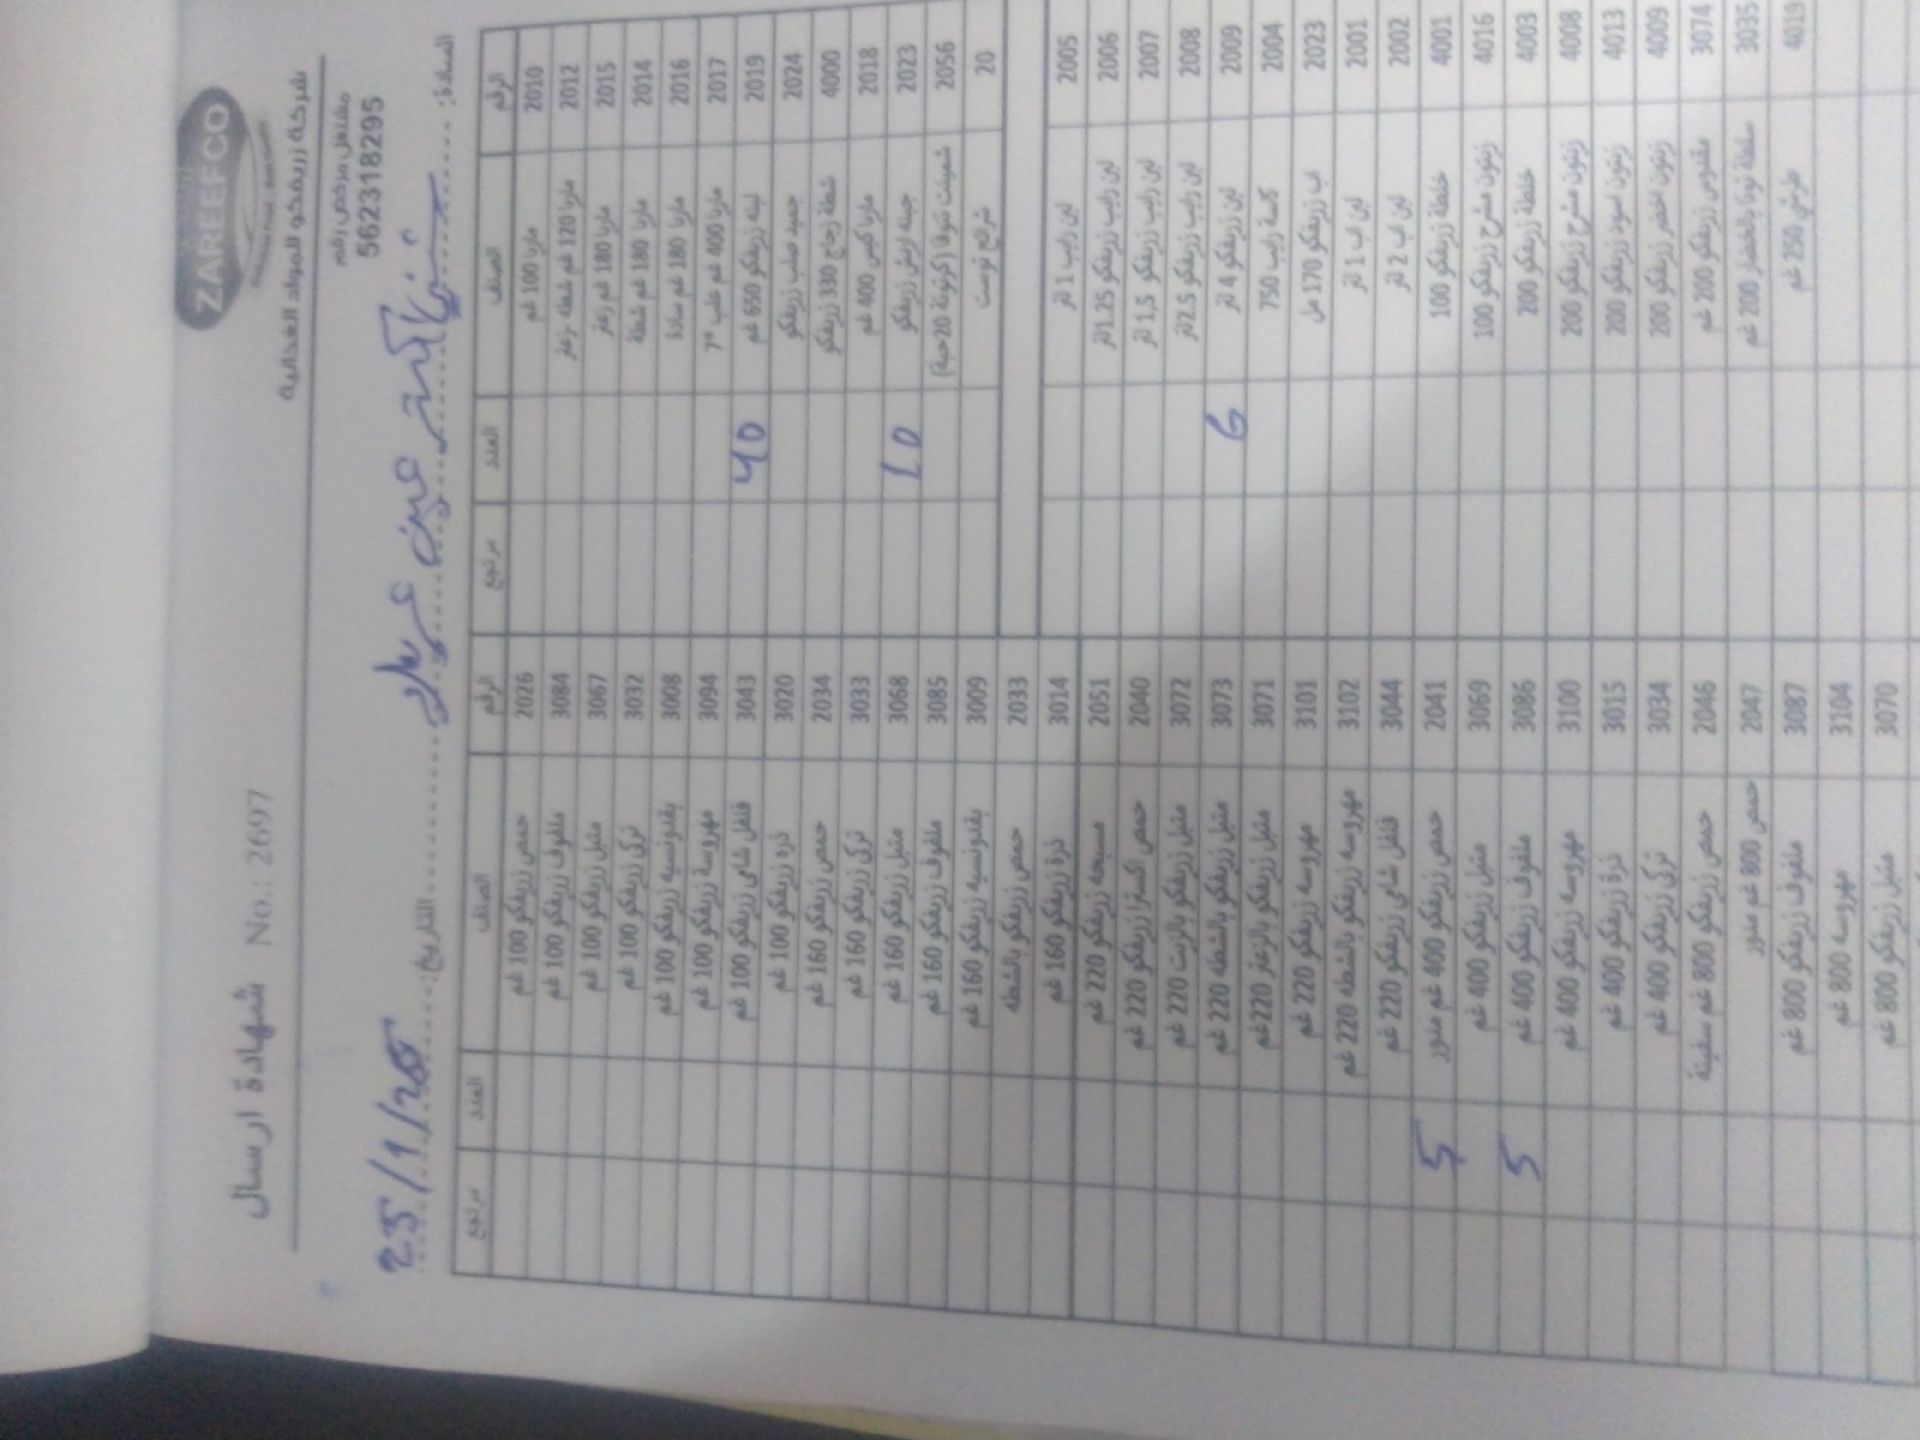 ZAREEFCO
شركة زريفكو للمواد الغذائية
مشتغل مرخص رقم
562318295
شهادة ارسال No.: 2697
السادة:
التاريخ: 25/1/26
الرقم الصنف العدد مرتجع الرقم الصنف العدد مرتجع
2010 مارينا 100 غم 2026 حمص زريفكو 100 غم
2012 مارينا 120 غم شطة زعتر 3084 ملفوف زريفكو 100 غم
2015 مارينا 180 غم زعتر 3067 متبل زريفكو 100 غم
2014 مارينا 180 غم شطة 3032 تركي زريفكو 100 غم
2016 مارينا 180 غم سادة 3008 بقدونسيه زريفكو 100 غم
2017 مارينا 400 غم علب *7 3094 مهروسة زريفكو 100 غم
2019 لبنه زريفكو 650 غم 40 3043 فلفل شامي زريفكو 100 غم
2024 جميد صلب زريفكو 3020 ذره زريفكو 100 غم
4000 شطة زجاج 330 زريفكو 2034 حمص زريفكو 160 غم
2018 مارينا كيس 400 غم 3033 تركي زريفكو 160 غم
2023 جبنه ابيض زريفكو 10 3068 متبل زريفكو 160 غم
2056 (كرتونة 20 حبة) 3085 ملفوف زريفكو 160 غم
20 شرائح توست 3009 بقدونسيه زريفكو 160 غم
2033 حمص زريفكو بالشطه
2005 لبن رايب 1 لتر 3014 ذرة زريفكو 160 غم
2006 لبن رايب زريفكو 1.25 لتر 2051 مسبحه زريفكو 220 غم
2007 لبن رايب زريفكو 1.5 لتر 2040 حمص اكسترا زريفكو 220 غم
2008 لبن رايب زريفكو 2.5 لتر 3072 متبل زريفكو بالزيت 220 غم
2009 لبن زريفكو 4 لتر 6 3073 متبل زريفكو بالشطه 220 غم
2004 كاسة رايب 750 3071 متبل زريفكو بالزعتر 220 غم
2023 لبن زريفكو 170 مل 3101 مهروسه زريفكو 220 غم
2001 لبن اب 1 لتر 3102 مهروسه زريفكو بالشطه 220 غم
2002 لبن اب 2 لتر 3044 فلفل شامي زريفكو 220 غم
4001 خلطة زريفكو 100 2041 حمص زريفكو 400 غم مدور 5
4016 زيتون مشرح زريفكو 100 3069 متبل زريفكو 400 غم
4003 خلطة زريفكو 200 3086 ملفوف زريفكو 400 غم 5
4008 زيتون مشرح زريفكو 200 3100 مهروسه زريفكو 400 غم
4013 زيتون اسود زريفكو 200 3015 ذرة زريفكو 400 غم
4009 زيتون اخضر زريفكو 200 3034 تركي زريفكو 400 غم
3074 مقدوس زريفكو 200 غم 2046 حمص زريفكو 800 غم سفينة
3035 سلطة تونا بالخضار 200 غم 2047 حمص 800 غم مدور
4019 طرشي 250 غم 3087 ملفوف زريفكو 800 غم
3104 مهروسه 800 غم
3070 متبل زريفكو 800 غم